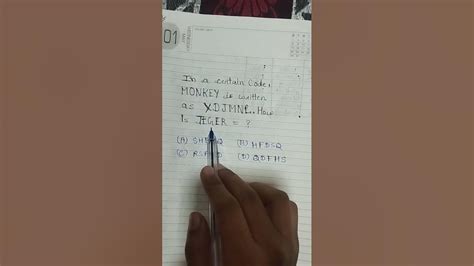 01
In a certain code,
MONKEY is written
as XDJMNL. How
is TIGER = ?
(A) (B) HFDSQ
(C) (D) QDFHS